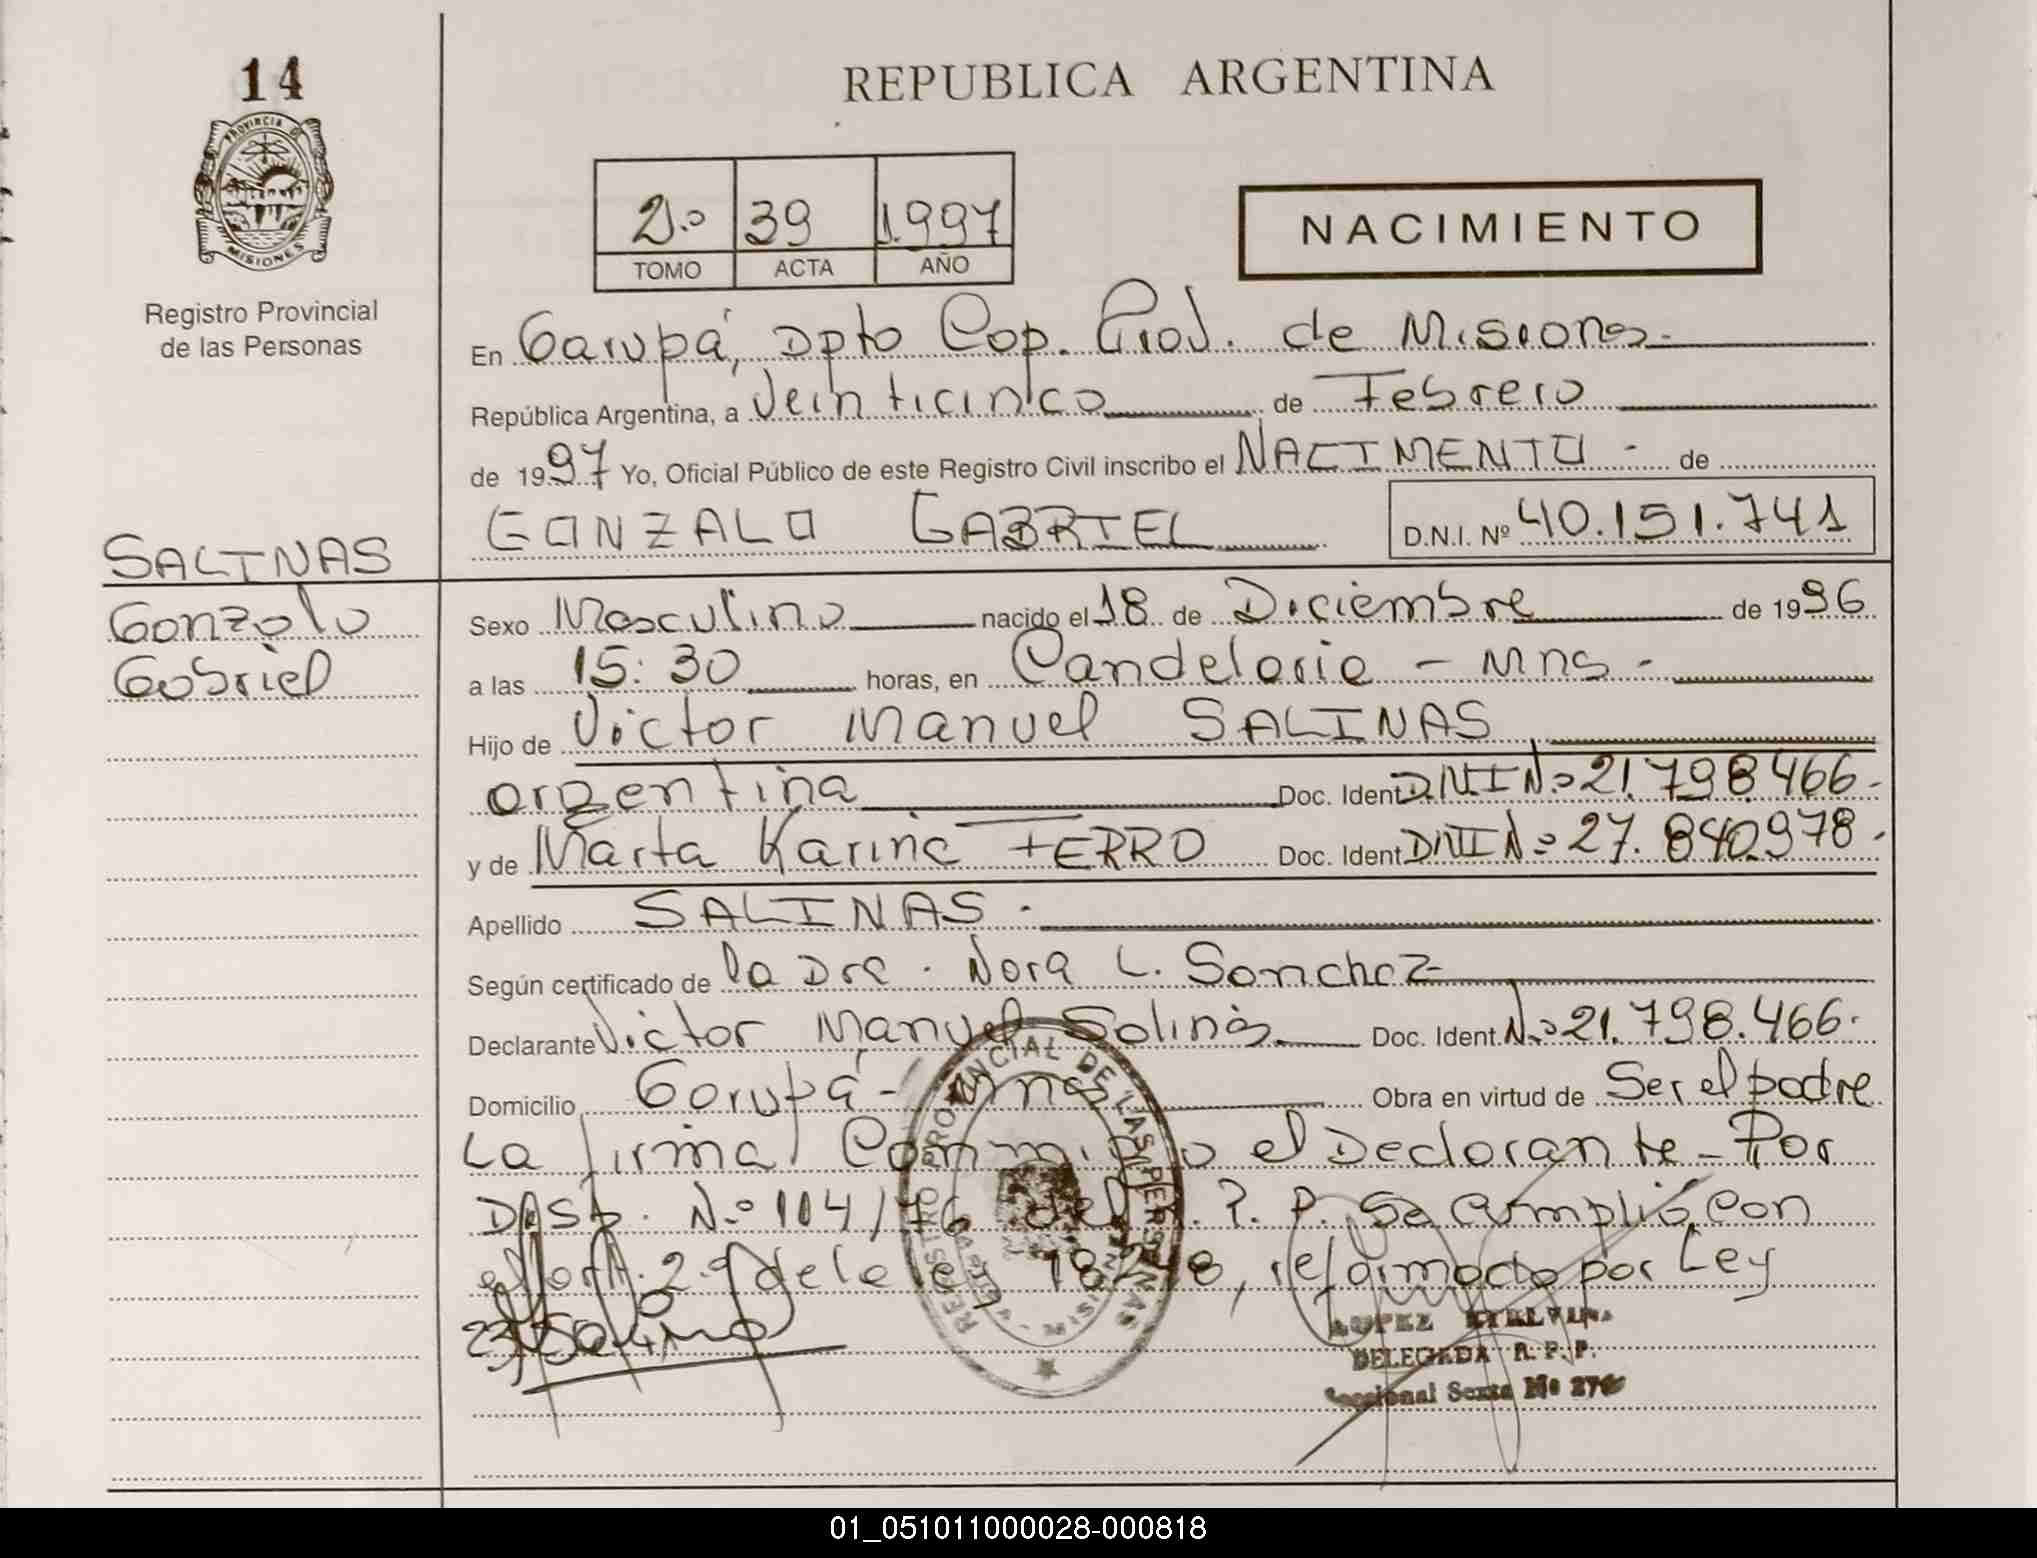 14
PROVINCIA D
MISIONES
Registro Provincial
de las Personas
SALINAS
Gonzalo
Gabriel
REPUBLICA ARGENTINA
2.º 39 1.997
TOMO ACTA AÑO
NACIMIENTO
En Garupá, Dpto Cap. Prov. de Misiones.-
República Argentina, a Veinticinco de Febrero
de 1997 Yo, Oficial Público de este Registro Civil inscribo el NACIMENTO - de
GONZALO GABRIEL D.N.I. Nº 40.151.741
Sexo Masculino nacido el 18 de Diciembre de 1996
a las 15:30 horas, en Candelaria - Mns -
Hijo de Victor Manuel SALINAS
argentina Doc. Ident DNI Nº 21.798.466.-
y de Marta Karina FERRO Doc. Ident DNI Nº 27.840.978.-
Apellido SALINAS.
Según certificado de la Dra. Nora L. Sanchez
Declarante Victor Manuel Salinas Doc. Ident. Nº 21.798.466.
Domicilio Garupá - Mnes Obra en virtud de Ser el padre
La firma Conmigo el Declarante - Por
Disp. Nº 104/76 del R. P. P. Se cumplió con
el Art. 2.º de la Ley 18248, reformado por Ley
REGISTRO PROVINCIAL DE LAS PERSONAS
LOPEZ ETELVINA
DELEGADA R. P. P.
Seccional Sexta Nº 276
01_051011000028-000818